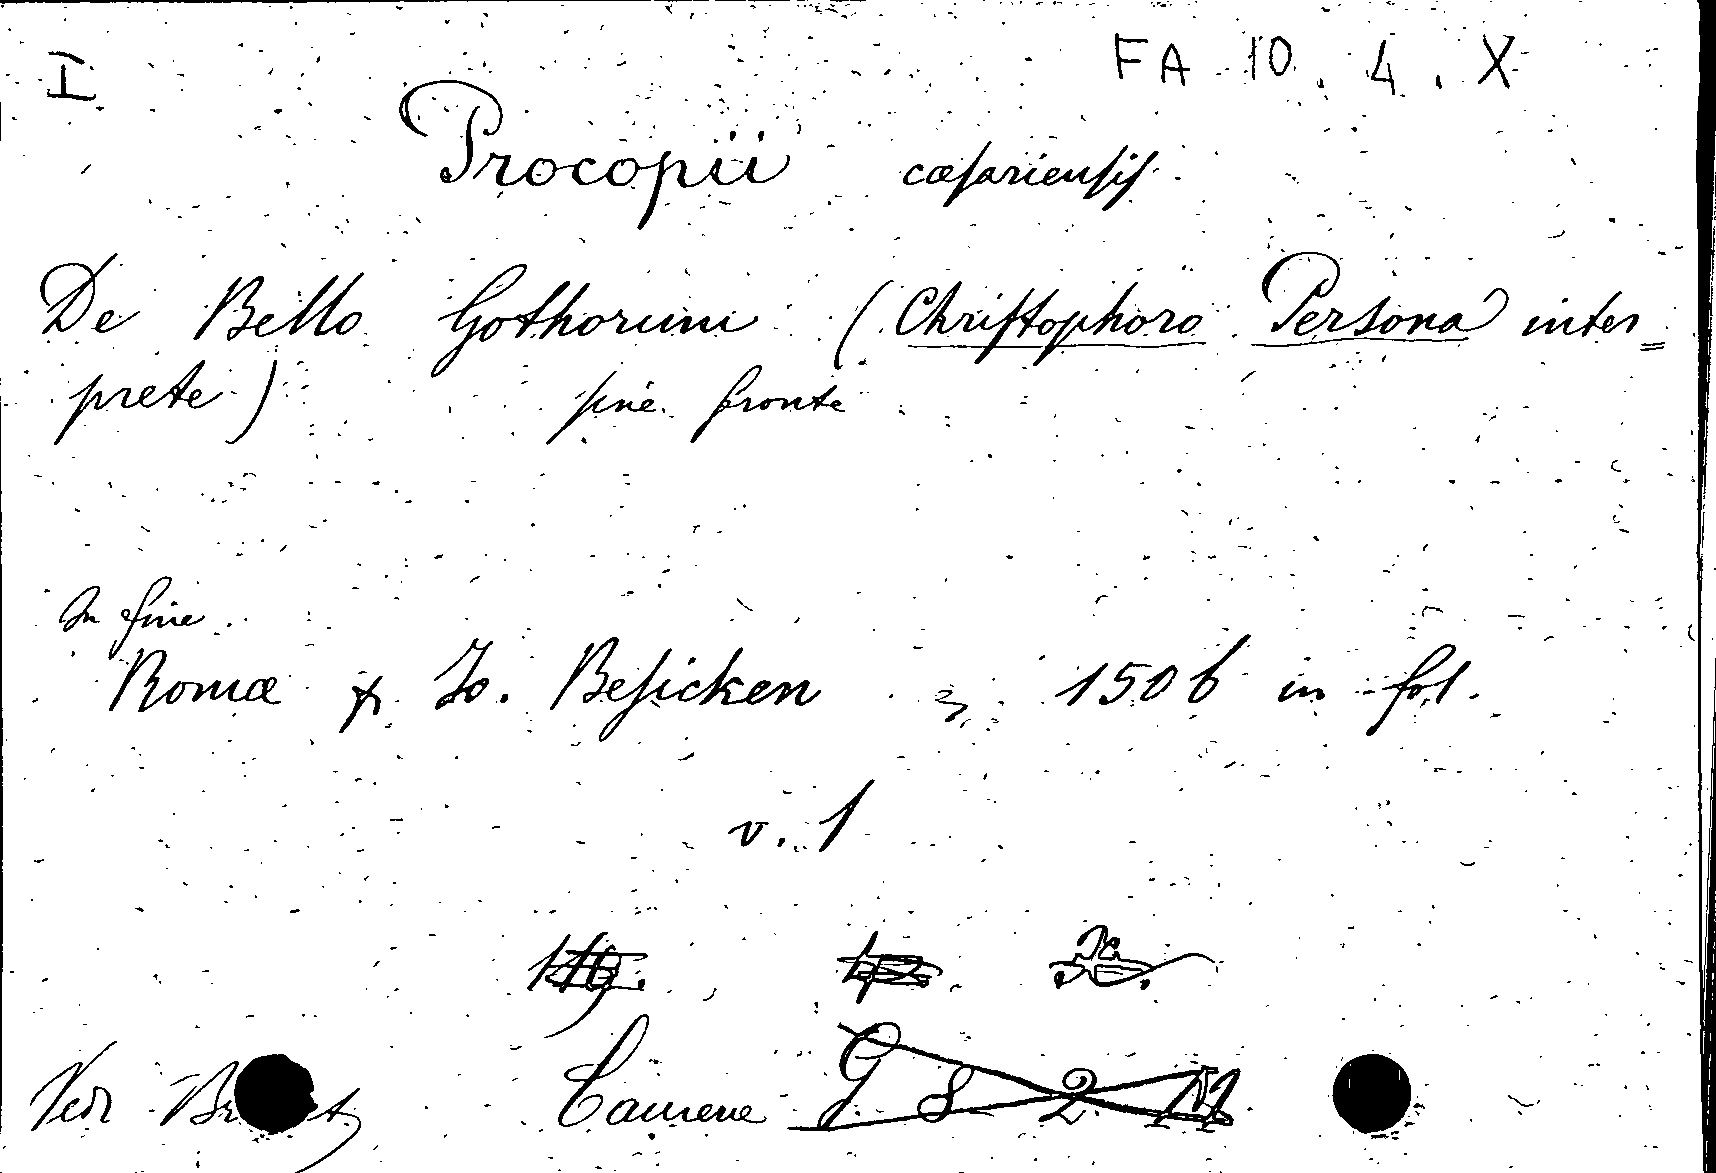 I FA 10. 4. X
Procopii cæsariensis
De Bello Gothorum (Christophoro Persona inter=
prete) sine fronte
In fine
Romæ p. Jo. Besicken 1506 in fol.
v. 1
Vedi Camere G 8 2 M